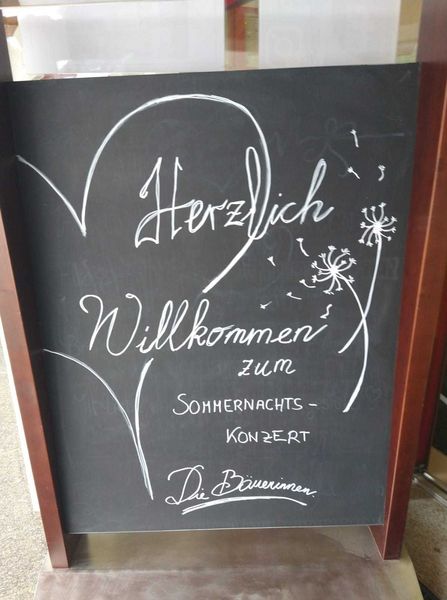 Herzlich
Willkommen
zum
SOMMERNACHTS-
KONZERT
Die Bäuerinnen.